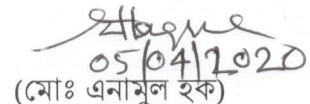 05/04/2020
(মোঃ এনামুল হক)